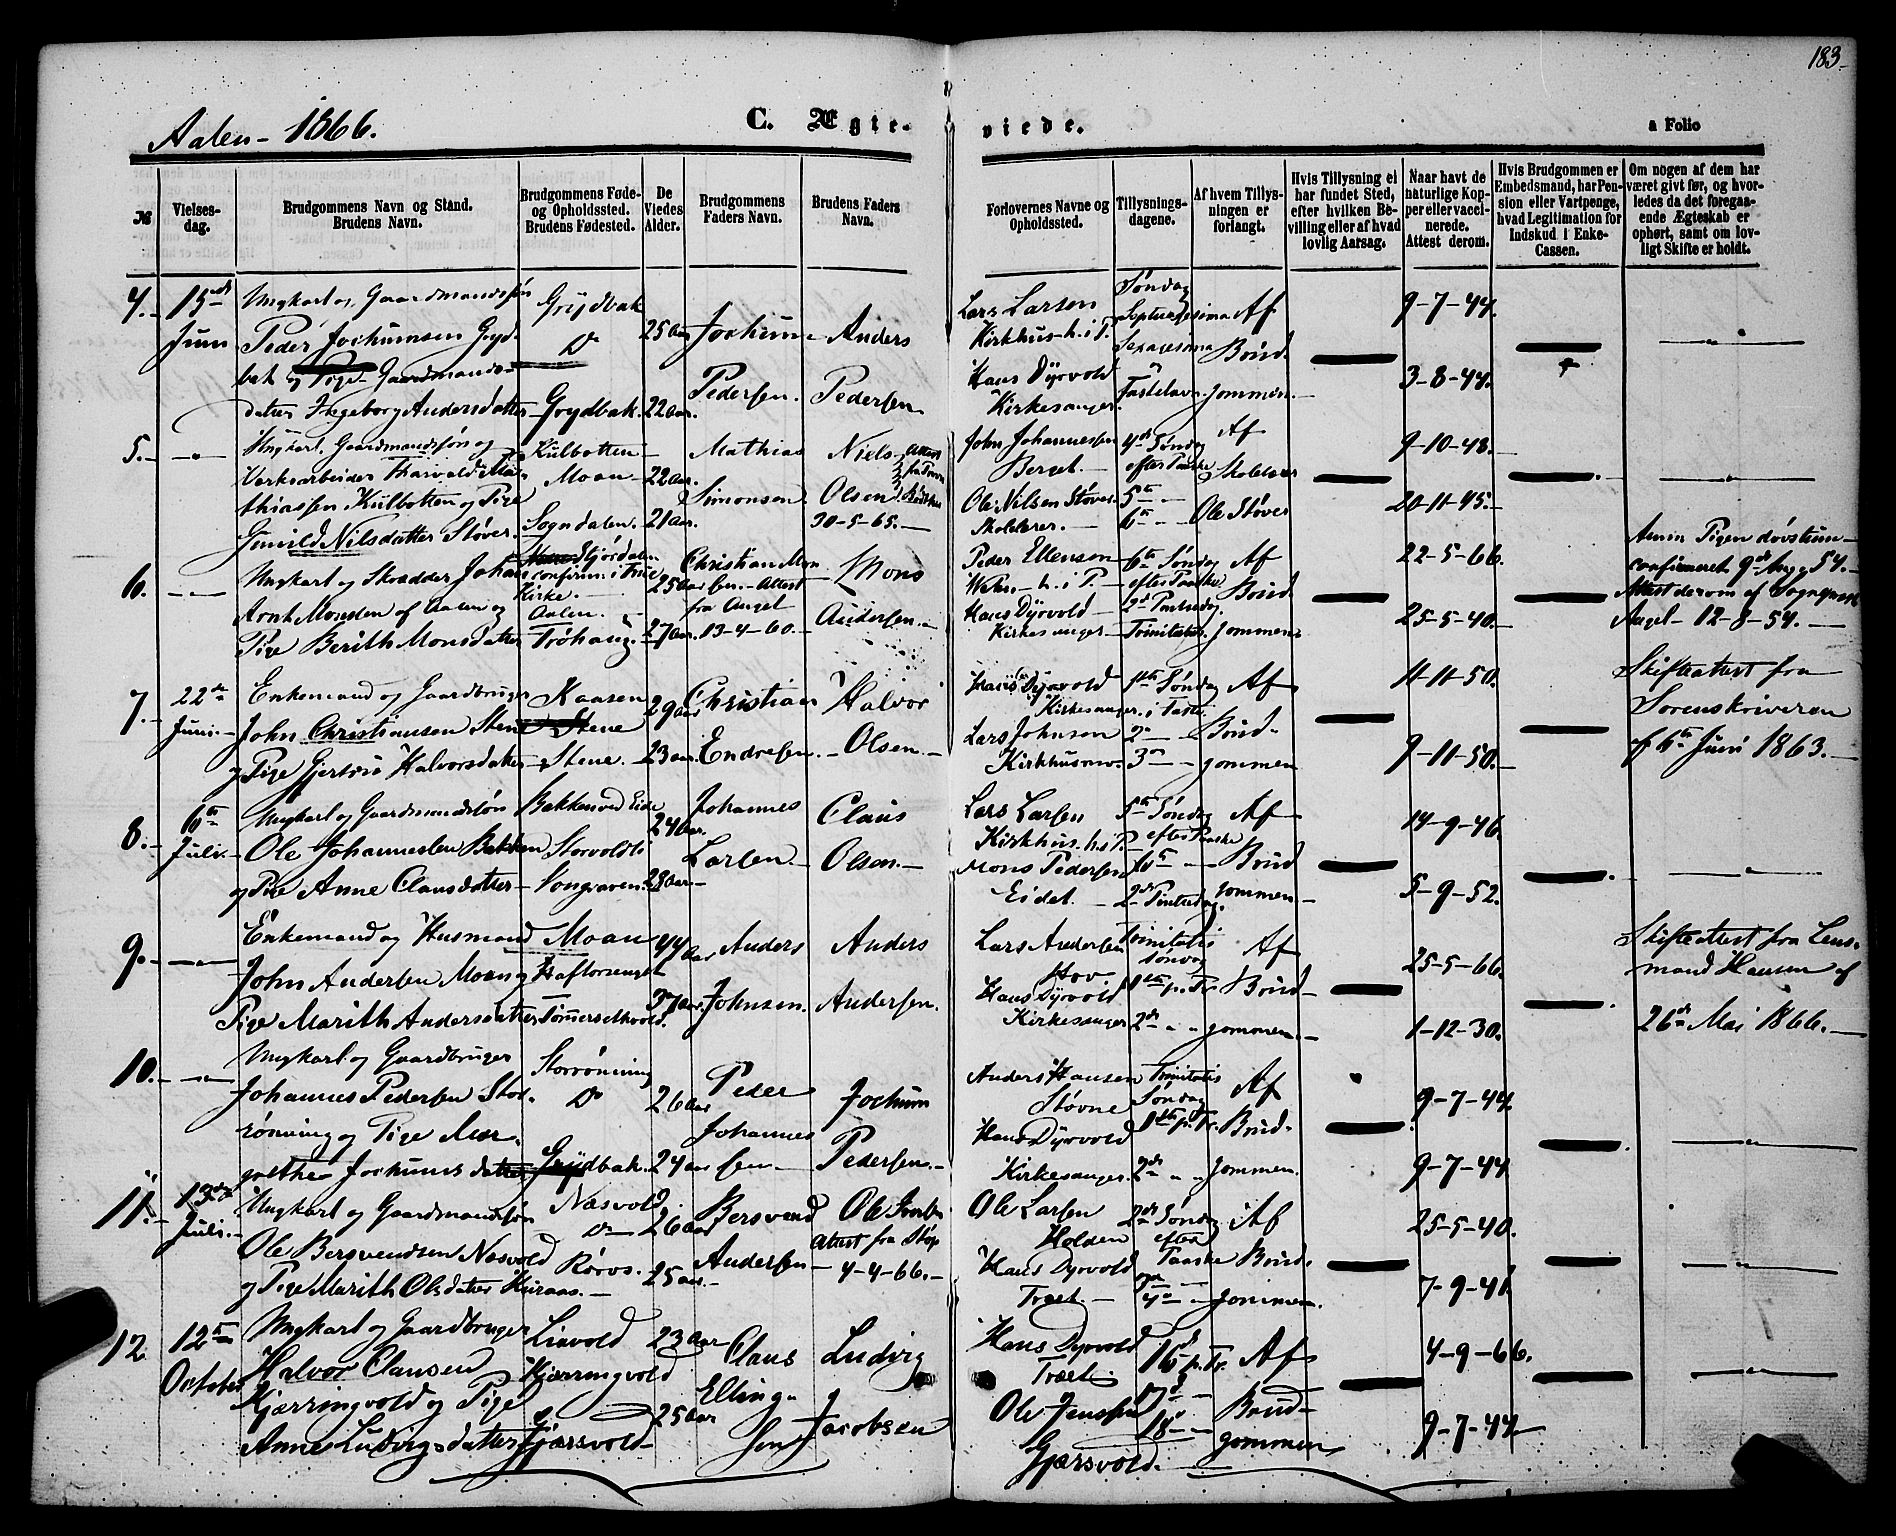 183.
Aalen - 1866.
C. Ægte-
viede.
a Folio
№
Vielses-
dag.
Brudgommens Navn og Stand.
Brudens Navn.
Brudgommens Føde-
og Opholdssted.
Brudens Fødested.
De
Viedes
Alder.
Brudgommens
Faders Navn.
Brudens Faders
Navn.
Forlovernes Navne og
Opholdssted.
Tillysnings-
dagene.
Af hvem Tillys-
ningen er
forlangt.
Hvis Tillysning ei
har fundet Sted,
efter hvilken Be-
villing eller af hvad
lovlig Aarsag.
Naar havt de
naturlige Kop-
per eller vacci-
nerede.
Attest derom.
Hvis Brudgommen er
Embedsmand, har Pen-
sion eller Vartpenge,
hvad Legitimation for
Indskud i Enke-
Cassen.
Om nogen af dem har
været givt før, og hvor-
ledes da det foregaa-
ende Ægteskab er
ophørt, samt om lov-
ligt Skifte er holdt.
4. 15de
Juni
Ungkarl og Gaardmandssøn
Peder Jochumsen Gryd-
bak og Pige Gaardmands-
datter Ingeborg Andersdatter
Grydbak
Do
Grydbak.
25 Aar
22 Aar.
Jochum
Pedersen.
Anders
Pedersen
Lars Larsen
Kirkhus - h. i P.
Hans Dyrvold
Kirkesanger.
Søndag
Septuagesima
Sexagesima
Fastelavn
Af
Brud-
gommen.
9-7-44.
3-8-44.
5.
Ungkarl, Gaardmandssøn og
Værksarbeider Tharvald Ma-
thiassen Kulbotten og Pige
Gunild Nilsdatter Støver.
Kulbotten
Moan
Sogndalen.
22 Aar.
21 Aar.
Mathias
Simonsen.
Niels
Olsen
30-5-65.
John Johannessen
Berget.
Ole Nilsen Støver
Skolelærer.
4de Søndag
efter Paaske
5te
6te
Af
Skolelærer
Ole Støver
9-10-48.
20-11-45.
6.
Ungkarl og Skrædder Johan
Arnt Monsen af Aalen og
Pige Berith Monsdatter
Stjørdalen
confirm. i
Kirke.
Aalen.
Trøhaug.
25 Aar
27 Aar
Christian Mon-
sen. - Attest
fra Anget
13-4-60.
Mons
Andersen.
Peder Ellensen
h. i P.
Hans Dyrvold
Kirkesanger
6te Søndag
efter Paaske
2den Pintsedag
Trinitatis.
Af
Brud
gommen
22-5-66.
25-5-40.
Pigen døvstum
confirmeret 9de Aug 54.
Attest derom af
12-8-54.
7. 22de
Juni.
Enkemand og Gaardbruger
John Christiansen Stene
og Pige Halvorsdatter
Kaasen
Stene
Stene.
29 Aar
23 Aar.
Christian
Endresen.
Halvor
Olsen.
Hans Dyrvold
Kirkesanger.
Lars Johnsen
Kirkhusmo.
1ste Søndag
i Faste
2den
3die
Af
Brud-
gommen
11-11-50.
9-11-50.
Skifteattest fra
Sorenskriveren
af 6te Juni 1863.
8. 6te
Juli.
Ungkarl og Gaardmandssøn
Ole Johannessen Bakken
og Pige Anne Clausdatter
Bakken ved Eide
Storvoldli
24 Aar.
28 Aar.
Johannes
Larsen
Claus
Olsen.
Lars Larsen
Kirkhus. h. i P.
Mons Pedersen
Eidet.
5te Søndag
efter Paaske
6te
2den Pintsedag
Af
Brud
gommen
14-9-46
5-9-52.
9.
Enkemand og Husmand
John Andersen Moan og
Pige Marith Andersdatter
Moan
44 Aar
37 Aar.
Anders
Johnsen.
Anders
Andersen.
Lars Andersen
Hov
Hans Dyrvold
Kirkesanger
Trinitatis
Søndag
1ste p. Tr.
2den
Af
Brud-
gommen.
25-5-66.
1-12-30.
Skifteattest fra Lens-
mand Hansen af
26de Mai 1866.
10.
Ungkarl og Gaardbruger
Johannes Pedersen Stor-
rønning og Pige Mar-
grethe Jochumsdatter
Storrønning
Do
Grydbak.
26 Aar
24 Aar
Peder
Johannes
sen
Jochum
Pedersen.
Anders Hansen
Støvne
Hans Dyrvold
Kirkesanger.
Trinitatis
Søndag
1ste p. Tr.
2den
Af
Brud-
gommen.
9-7-44.
9-7-44.
11. 13de
Juli.
Ungkarl og Gaardmandssøn
Ole Bersvendsen Næsvold
og Pige Marith Olsdatter Kuraas.
Næsvold
Do
Røros.
26 Aar
25 Aar.
Bersvend
Andersen
Ole
Attest fra
4-4-66.
Ole Larsen
Holden
Hans Dyrvold
Træet.
2den Søndag
efter
Paaske
4de
Af
Brud-
gommen.
25-5-40.
7-9-41
12 12te
October
Ungkarl og Gaardbruger
Halvor Clausen
Kjærringvold og Pige
Anne Ludvigsdatter
Liavold
Kjærringvold
Gjærsvold
23 Aar
25 Aar
Claus
Elling-
sen
Ludvig
Jacobsen
Hans Dyrvold
Træet.
Ole Jenssen
Gjærsvold.
16de p. Tr.
17de
18de
Af
Brud-
gommen
4-9-66.
9-7-44